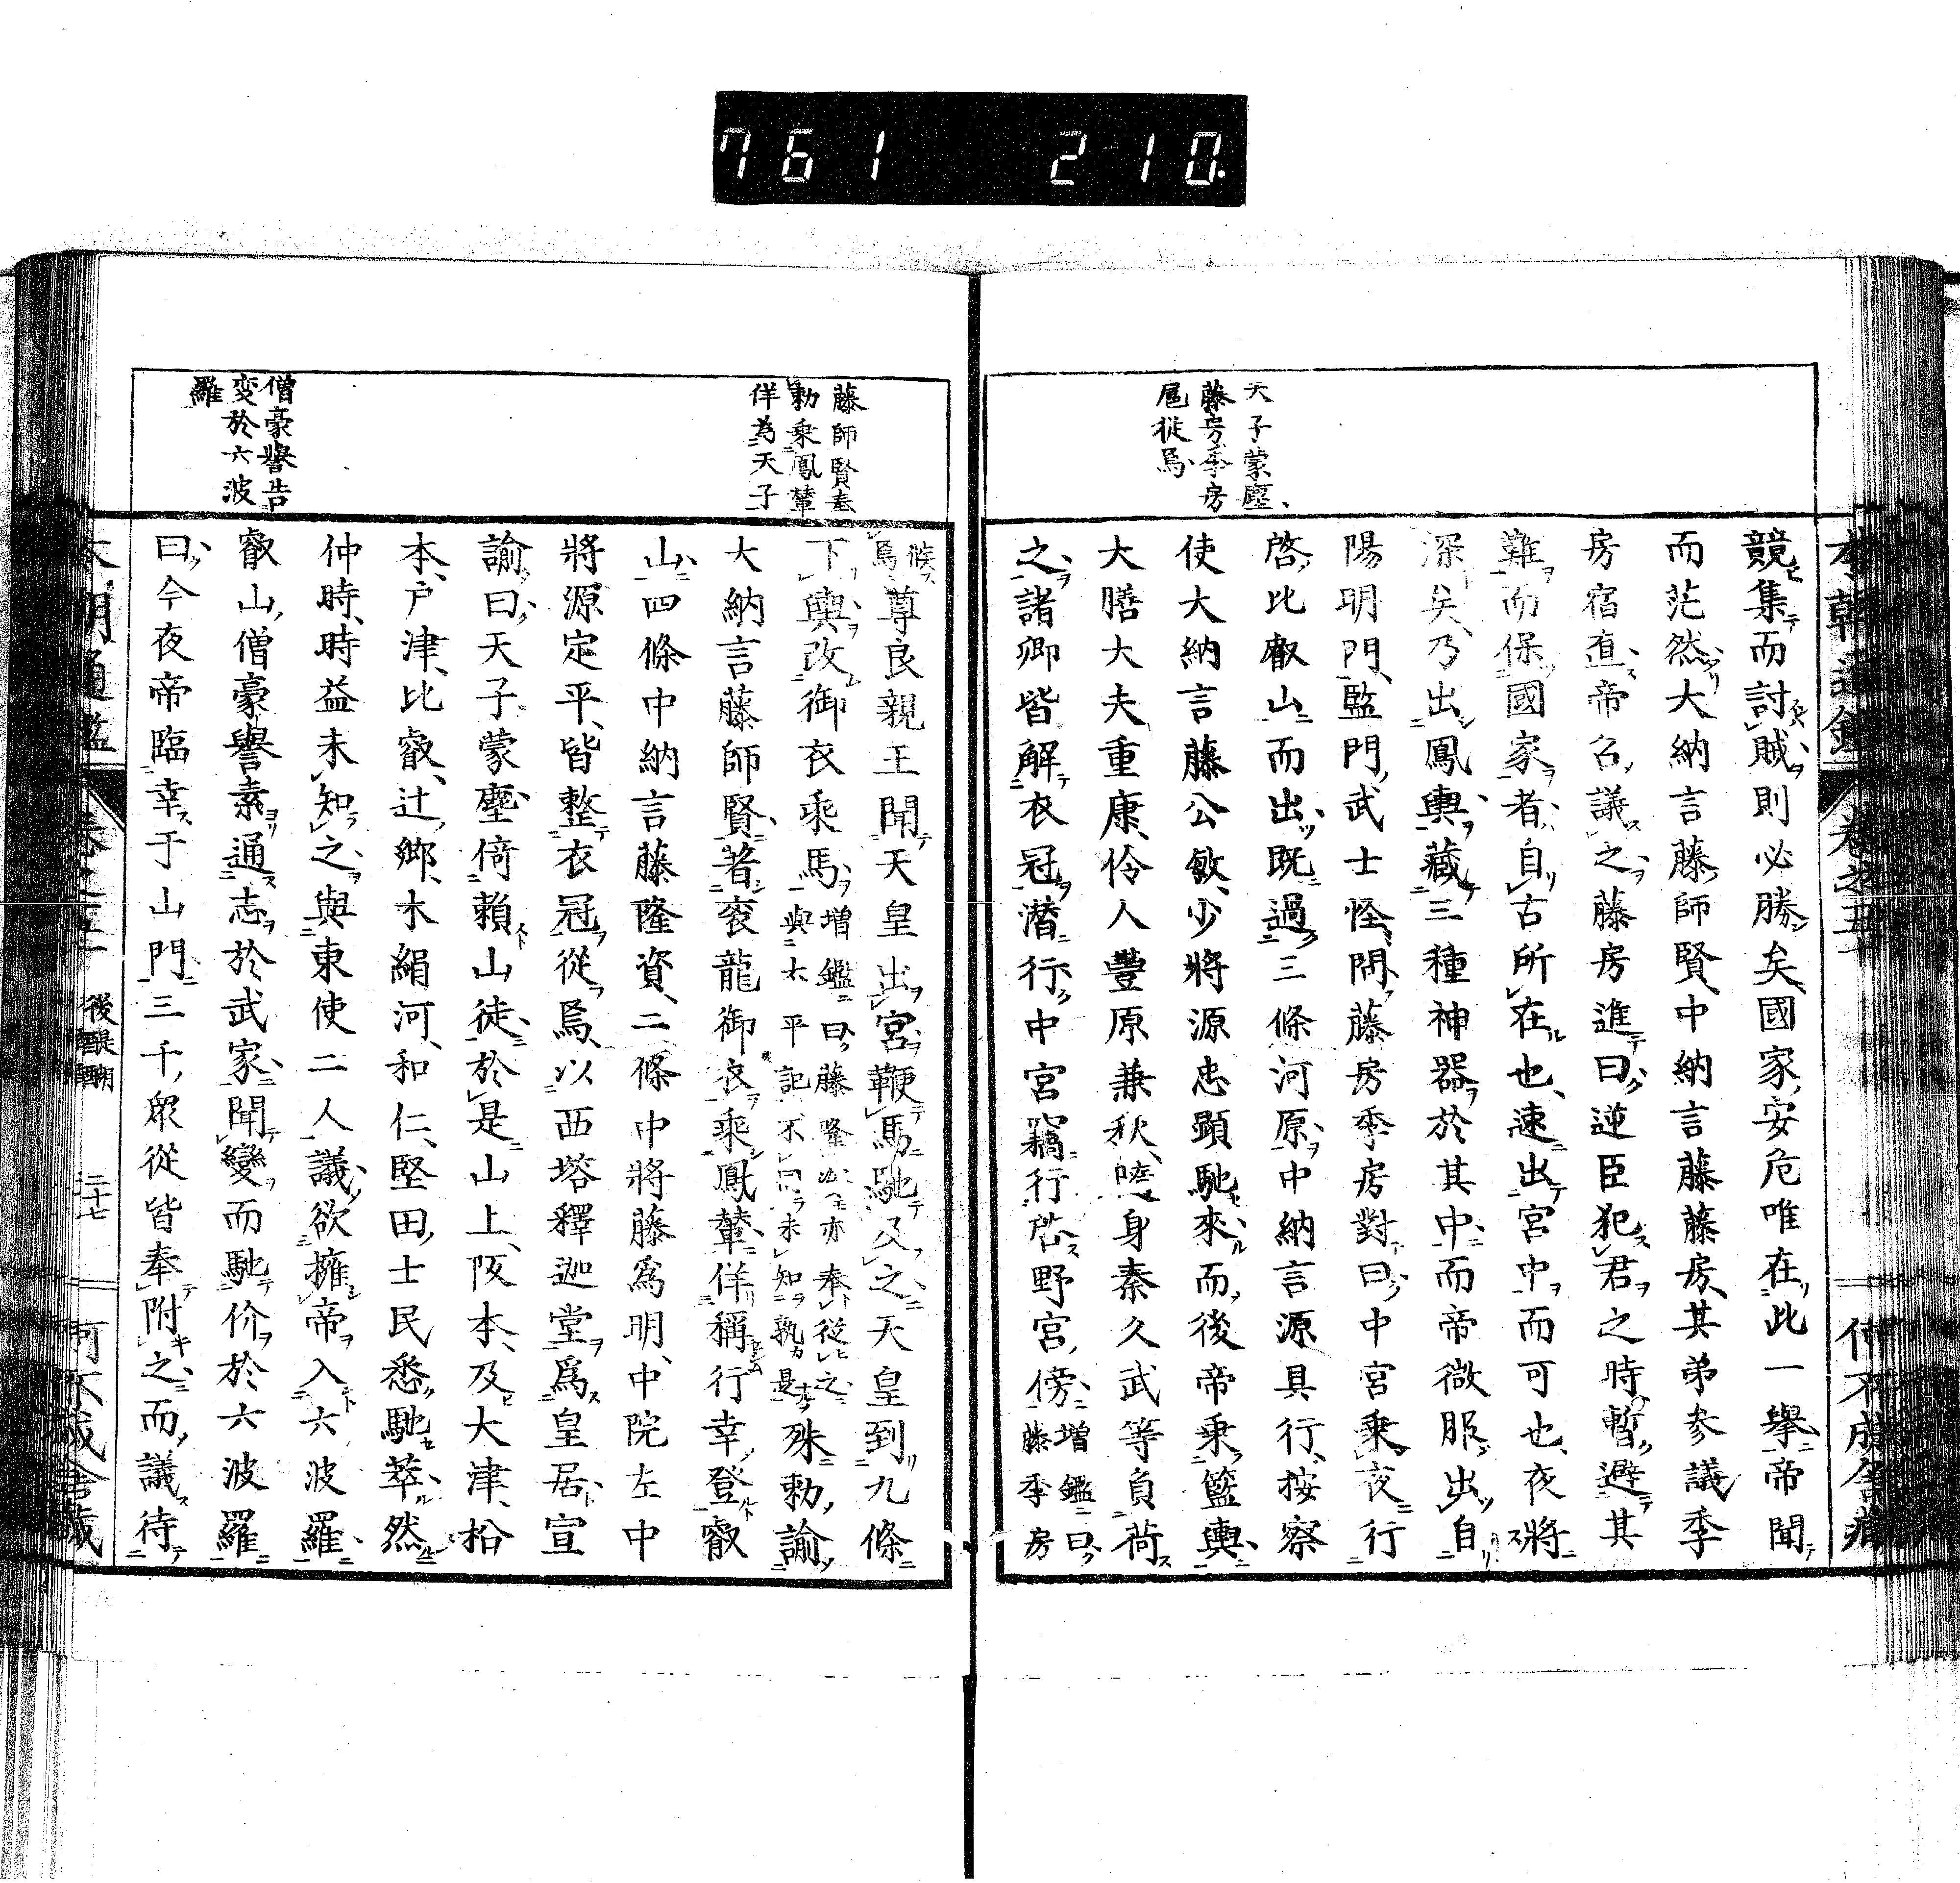 761 210.
天子蒙塵、
藤房季房
扈從焉
競集而討賊則必勝矣國家安危唯在此一擧帝聞
而茫然大納言藤師賢中納言藤藤房其弟參議季
房宿直帝召議之藤房進曰逆臣犯君之時暫避其
難而保國家者自古所在也速出宮中而可也夜將
深矣乃出鳳輿藏三種神器於其中而帝微服出自
陽明門監門武士怪問藤房季房對曰中宮乘夜行
啓比叡山而出既過三條河原中納言源具行按察
使大納言藤公敏少將源忠顯馳來而後帝乘籃輿
大膳大夫重康伶人豐原兼秋隨身秦久武等負荷
之諸卿皆解衣冠潛行中宮竊行啓野宮傍增鑑曰藤季房
藤師賢奉
勅乘鳳輦
佯為天子
僧豪譽告
変於六波
羅
候焉尊良親王聞天皇出宮鞭馬馳及之天皇到九條
下輿改御衣乘馬增鑑曰藤隆資亦奉從之與太平記不同未知孰是殊勅諭
大納言藤師賢著袞龍御衣乘鳳輦佯稱行幸登叡
山四條中納言藤隆資二條中將藤爲明中院左中
將源定平皆整衣冠從焉以西塔釋迦堂爲皇居宣
諭曰天子蒙塵倚賴山徒於是山上阪本及大津松
本戶津比叡辻鄉木絹河和仁堅田士民悉馳萃然
仲時時益未知之與東使二人議欲擁帝入六波羅
叡山僧豪譽素通志於武家聞變而馳价於六波羅
曰今夜帝臨幸于山門三千衆從皆奉附之而議待
後醍醐 二十七